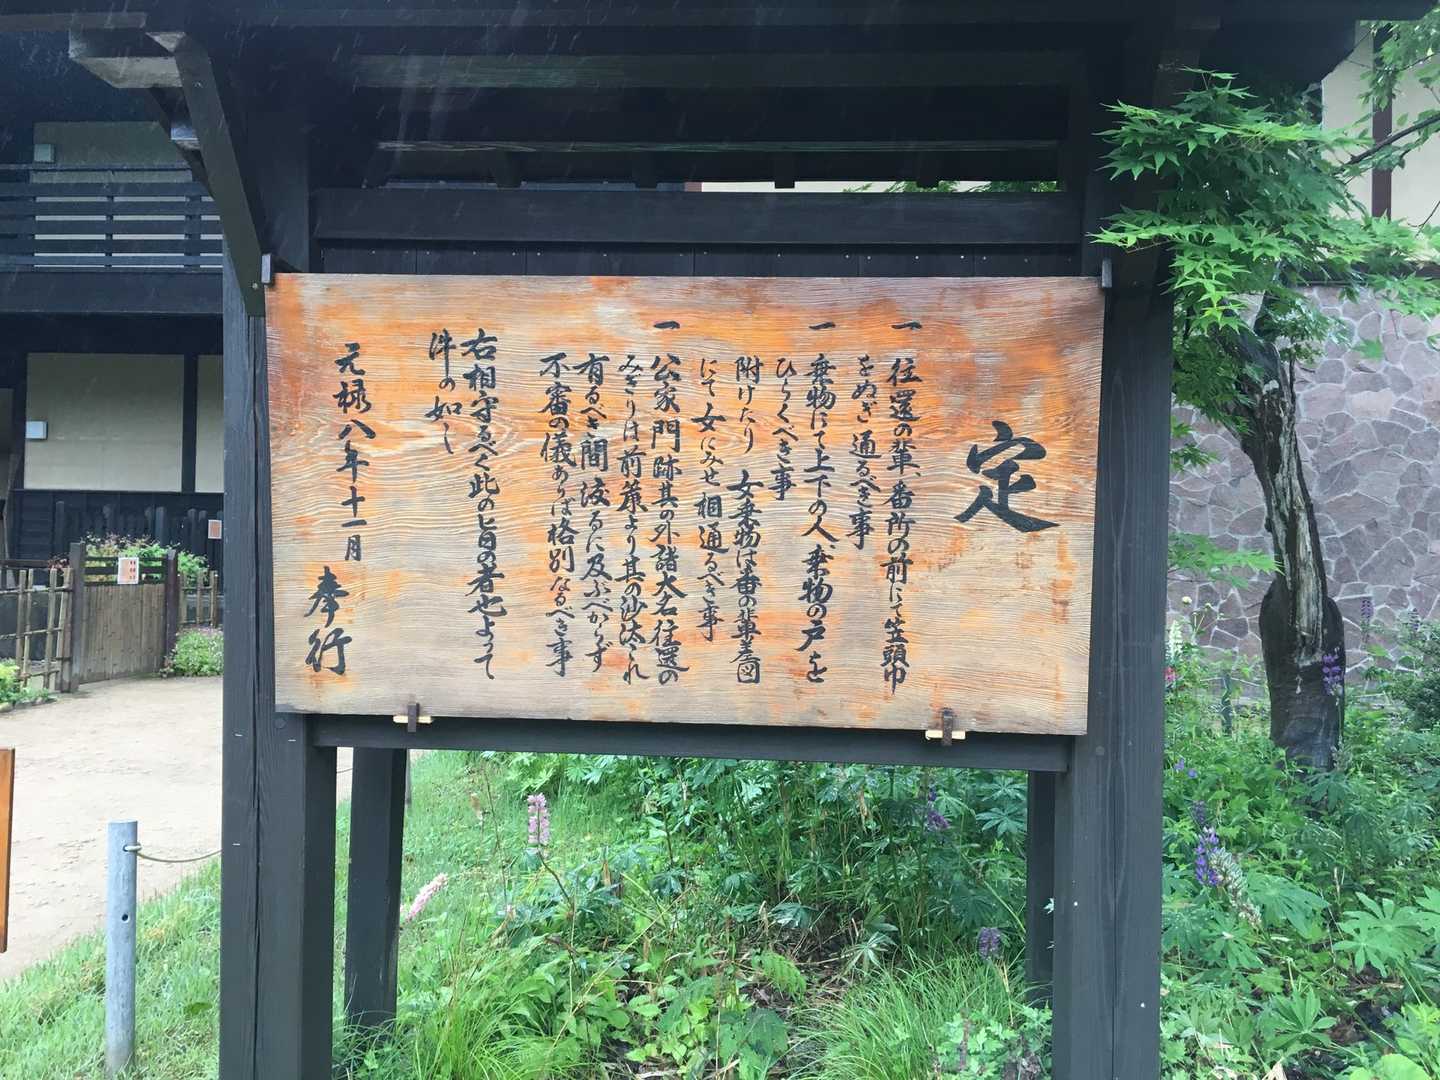 定
一 往還の輩、番所の前にて笠頭巾
をぬぎ通るべき事
一 乗物にて上下の人、乗物の戸を
ひらくべき事
附けたり 女乗物は番の輩差図
にて女にみせ相通るべき事
一 公家門跡其の外諸大名往還の
みぎりは前廉より其の沙汰これ
有るべき間改るに及ぶべからず
不審の儀あらば格別なるべき事
右相守るべく此の旨の者也よって
件の如し
元禄八年十一月
奉行